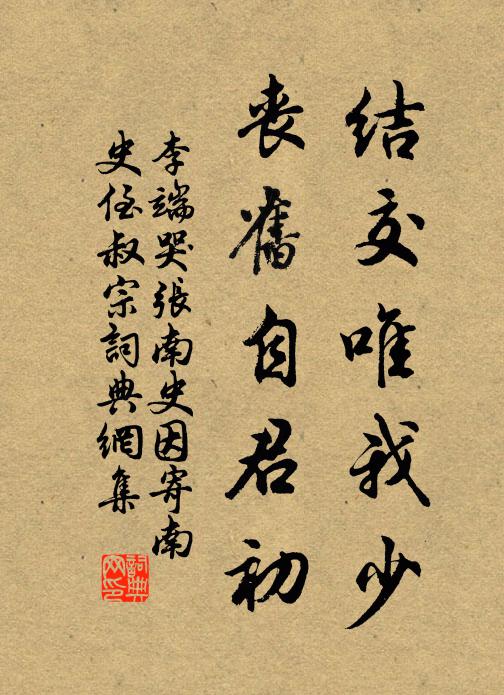 结交唯我少
丧旧自君初
李端哭張南史因寄南
史侄叔宗詞典網集
詞典网印